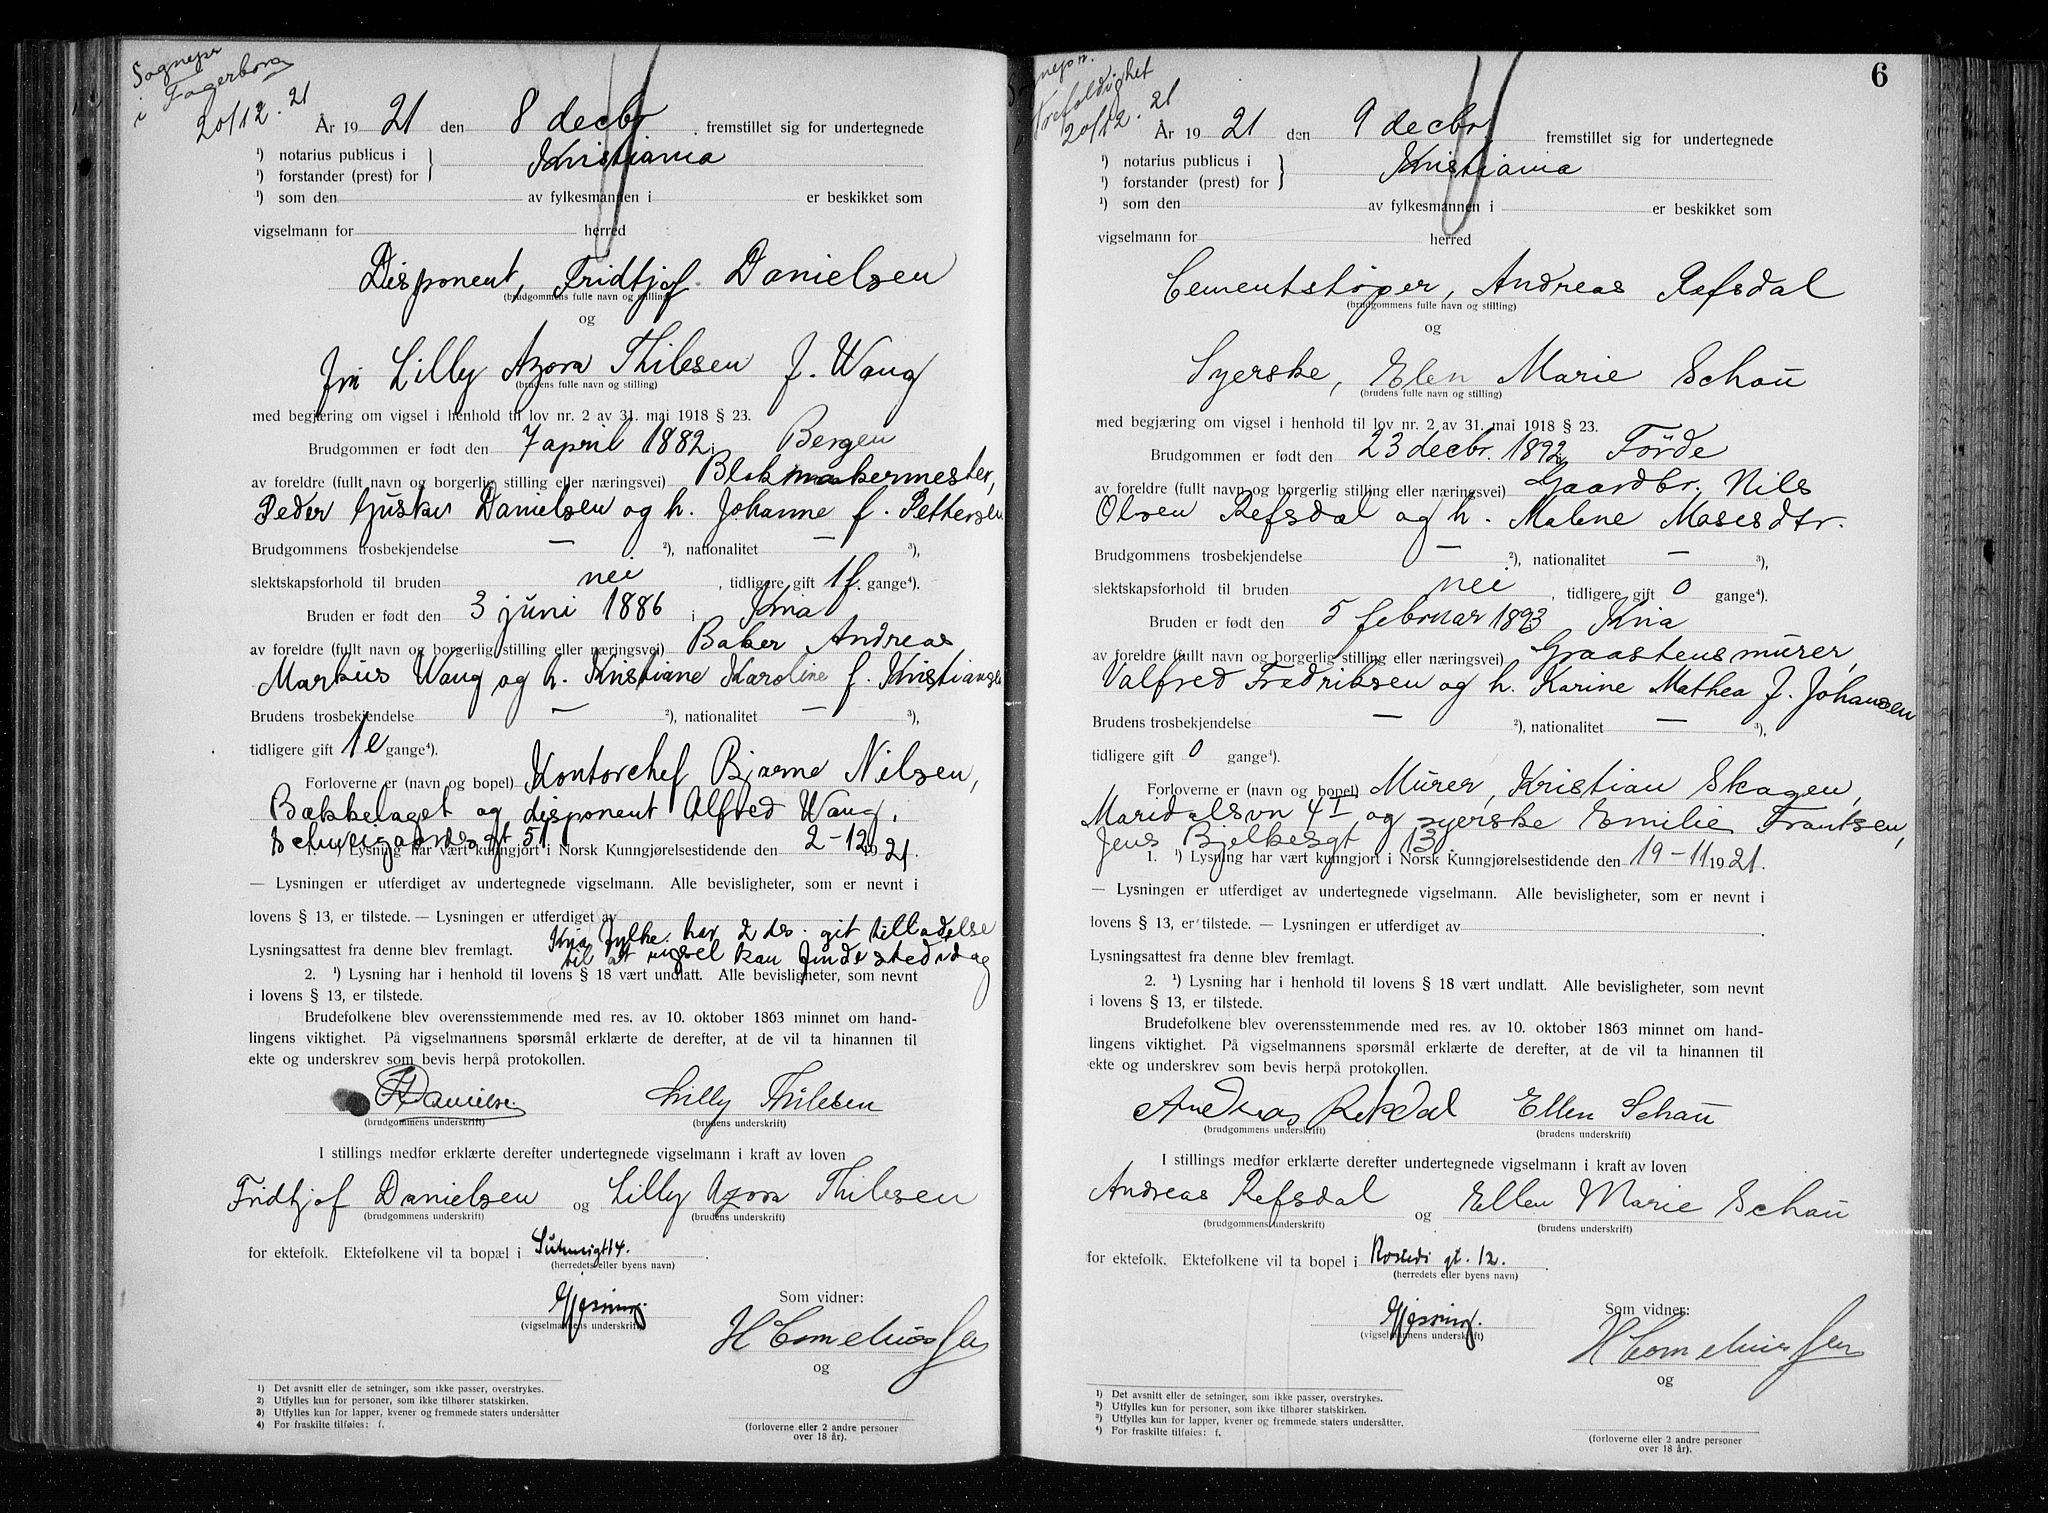 Sognepr
i Fagerborg
20/12. 21
År 1921 den 8 decbr. fremstillet sig for undertegnede
¹) notarius publicus i } Kristiania
¹) forstander (prest) for
¹) som den av fylkesmannen i er beskikket som
vigselmann for herred
Disponent, Fridtjof Danielsen
(brudgommens fulle navn og stilling)
og
Fru Lilly Azora Thilesen f. Wang
(brudens fulle navn og stilling)
med begjæring om vigsel i henhold til lov nr. 2 av 31. mai 1918 § 23.
Brudgommen er født den 7 april 1882 i Bergen
av foreldre (fullt navn og borgerlig stilling eller næringsvei) Blokmakermester,
Peder Danielsen og h. Johanne f. Pettersen
Brudgommens trosbekjendelse — ²), nationalitet — ³),
slektskapsforhold til bruden nei, tidligere gift 1 f. gange⁴).
Bruden er født den 3 juni 1886 i Kria
av foreldre (fullt navn og borgerlig stilling eller næringsvei) Baker Andreas
Markus Wang og h. Kristiane Karoline f. Kristiansen
Brudens trosbekjendelse — ²), nationalitet — ³),
tidligere gift 1 e gange⁴).
Forloverne er (navn og bopel) Kontorchef Bjarne Nilsen,
Bækkelaget og disponent Alfred Wang,
Schweigaardsgt 51
1. ¹) Lysning har vært kunngjort i Norsk Kunngjørelsestidende den 2-12 1921.
— Lysningen er utferdiget av undertegnede vigselmann. Alle bevisligheter, som er nevnt i
lovens § 13, er tilstede. — Lysningen er utferdiget av
Kria fylke har 2 ds. git tilladelse
Lysningsattest fra denne blev fremlagt. til at vigsel kan finde sted idag
2. ¹) Lysning har i henhold til lovens § 18 vært undlatt. Alle bevisligheter, som nevnt
i lovens § 13, er tilstede.
Brudefolkene blev overensstemmende med res. av 10. oktober 1863 minnet om hand-
lingens viktighet. På vigselmannens spørsmål erklærte de derefter, at de vil ta hinannen til
ekte og underskrev som bevis herpå protokollen.
F Danielsen. Lilly Thilesen
(brudgommens underskrift) (brudens underskrift)
I stillings medfør erklærte derefter undertegnede vigselmann i kraft av loven
Fridtjof Danielsen og Lilly Azora Thilesen
(brudgommens underskrift) (brudens underskrift)
for ektefolk. Ektefolkene vil ta bopæl i
(herredets eller byens navn)
Gjessing.
(vigselmannens underskrift)
Som vidner:
H Corneliussen
og
1) Det avsnitt eller de setninger, som ikke passer, overstrykes.
2) Utfylles kun for personer, som ikke tilhører statskirken.
3) Utfylles kun for lapper, kvener og fremmede staters undersåtter
4) For fraskilte tilføies: f.
(forloverne eller 2 andre personer
over 18 år).
6
Sognepr.
Trefoldighet
20/12. 21
År 1921 den 9 decbr. fremstillet sig for undertegnede
¹) notarius publicus i } Kristiania
¹) forstander (prest) for
¹) som den av fylkesmannen i er beskikket som
vigselmann for herred
Cementstøper, Andreas Refsdal
(brudgommens fulle navn og stilling)
og
Syerske, Elen Marie Schau
(brudens fulle navn og stilling)
med begjæring om vigsel i henhold til lov nr. 2 av 31. mai 1918 § 23.
Brudgommen er født den 23 decbr. 1892 Förde
av foreldre (fullt navn og borgerlig stilling eller næringsvei) Gaardbr. Nils
Olsen Refsdal og h. Malene Mosesdtr.
Brudgommens trosbekjendelse — ²), nationalitet — ³),
slektskapsforhold til bruden nei, tidligere gift 0 gange⁴).
Bruden er født den 5 februar 1893 Kria
av foreldre (fullt navn og borgerlig stilling eller næringsvei) Graastensmurer,
Valfred Fredriksen og h. Karine Mathea f. Johansen
Brudens trosbekjendelse — ²), nationalitet — ³),
tidligere gift 0 gange⁴).
Forloverne er (navn og bopel) Murer, Kristian Skagen,
Maridalsvn 4 I og syerske Emilie Frantsen,
Jens Bjelkesgt 13
1. ¹) Lysning har vært kunngjort i Norsk Kunngjørelsestidende den 19-11 1921.
— Lysningen er utferdiget av undertegnede vigselmann. Alle bevisligheter, som er nevnt i
lovens § 13, er tilstede. — Lysningen er utferdiget av
Lysningsattest fra denne blev fremlagt.
2. ¹) Lysning har i henhold til lovens § 18 vært undlatt. Alle bevisligheter, som nevnt
i lovens § 13, er tilstede.
Brudefolkene blev overensstemmende med res. av 10. oktober 1863 minnet om hand-
lingens viktighet. På vigselmannens spørsmål erklærte de derefter, at de vil ta hinannen til
ekte og underskrev som bevis herpå protokollen.
Andreas Refsdal Ellen Schau
(brudgommens underskrift) (brudens underskrift)
I stillings medfør erklærte derefter undertegnede vigselmann i kraft av loven
Andreas Refsdal og Ellen Marie Schau
(brudgommens underskrift) (brudens underskrift)
for ektefolk. Ektefolkene vil ta bopel i gt. 12.
(herredets eller byens navn)
Gjessing.
(vigselmannens underskrift)
Som vidner:
H Corneliussen
og
1) Det avsnitt eller de setninger, som ikke passer, overstrykes.
2) Utfylles kun for personer, som ikke tilhører statskirken.
3) Utfylles kun for lapper, kvener og fremmede staters undersåtter.
4) For fraskilte tilføies: f.
(forloverne eller 2 andre personer
over 18 år).